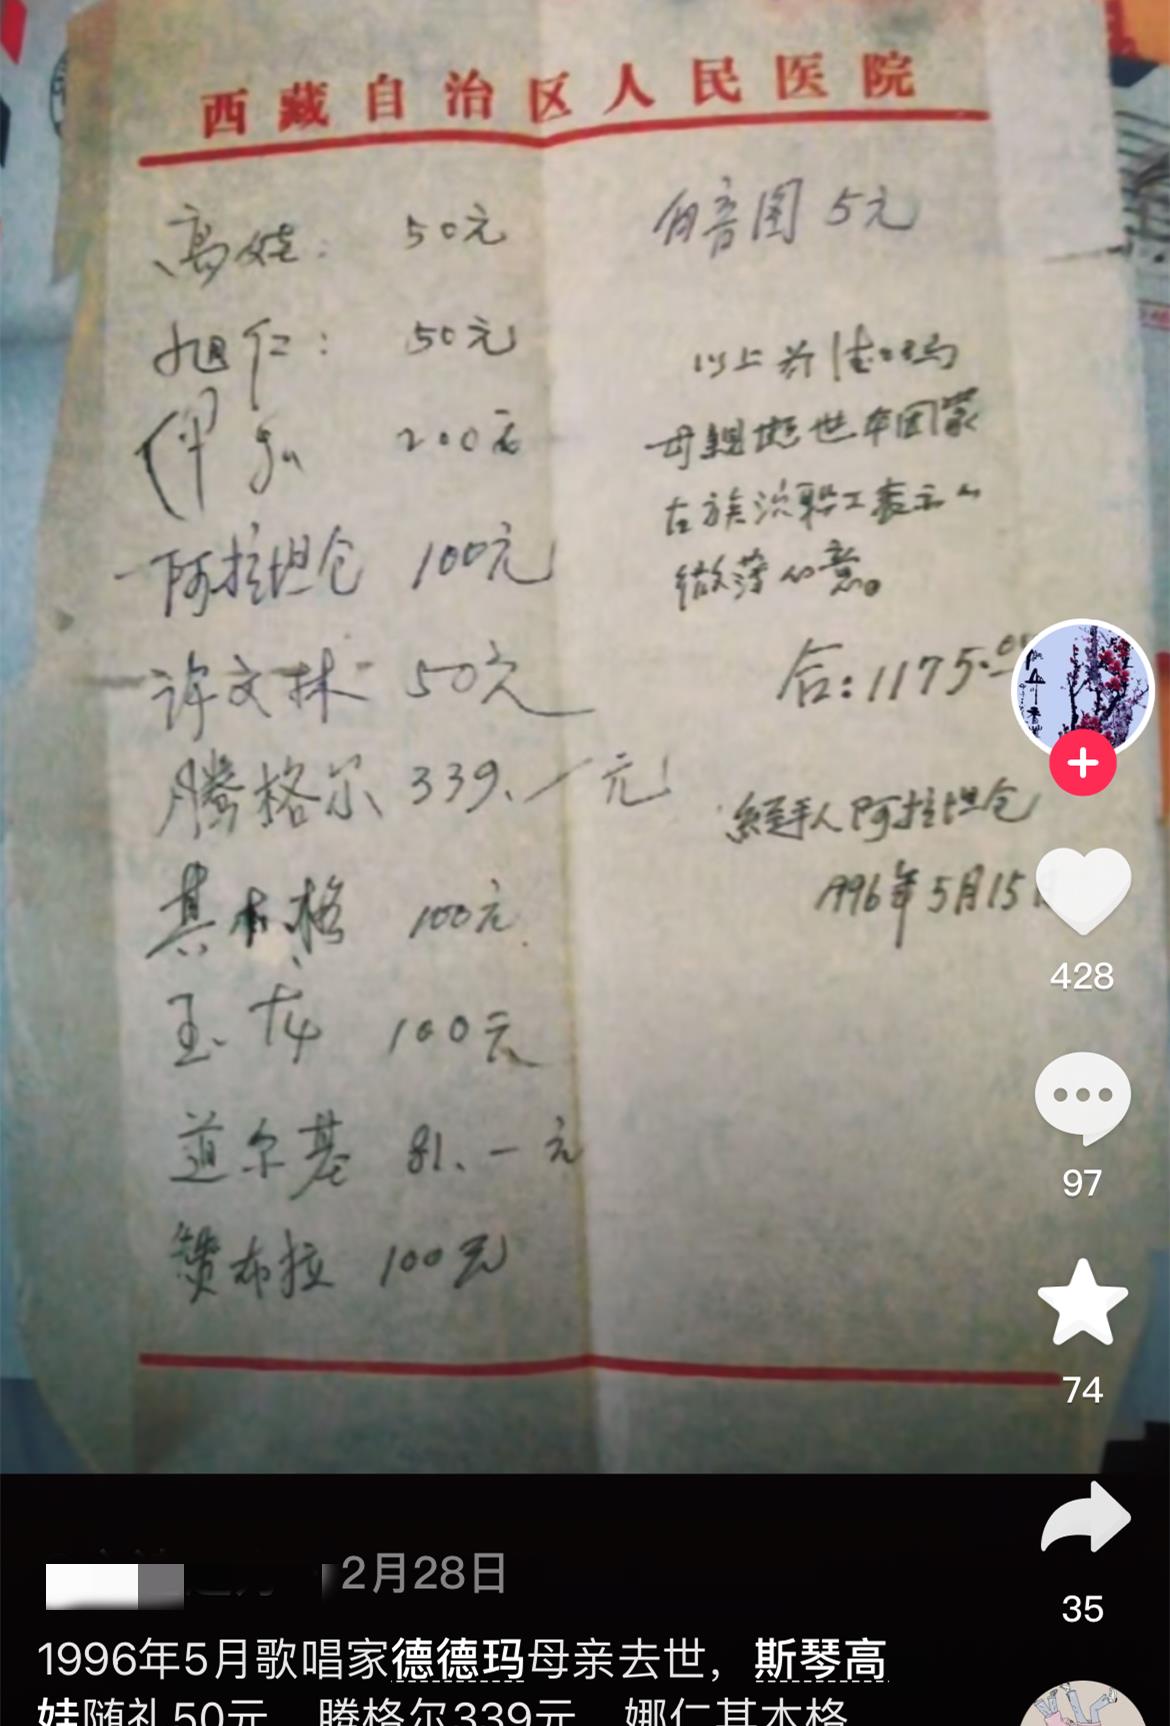 西藏自治区人民医院
高娃: 50元
旭仁: 50元
200元
阿拉坦仓 100元
许文林 50元
腾格尔 339.一元
其木格 100元
玉龙 100元
道尔基 81.一元
赞布拉 100元
白音图 5元
以上为德德玛
母親逝世本团蒙
古族演職工表示的
微薄心意。
合:1175.
經手人阿拉坦仓
1996年5月15
428
97
74
35
2月28日
1996年5月歌唱家德德玛母亲去世,斯琴高
娃随礼50元 腾格尔339元 娜仁其木格